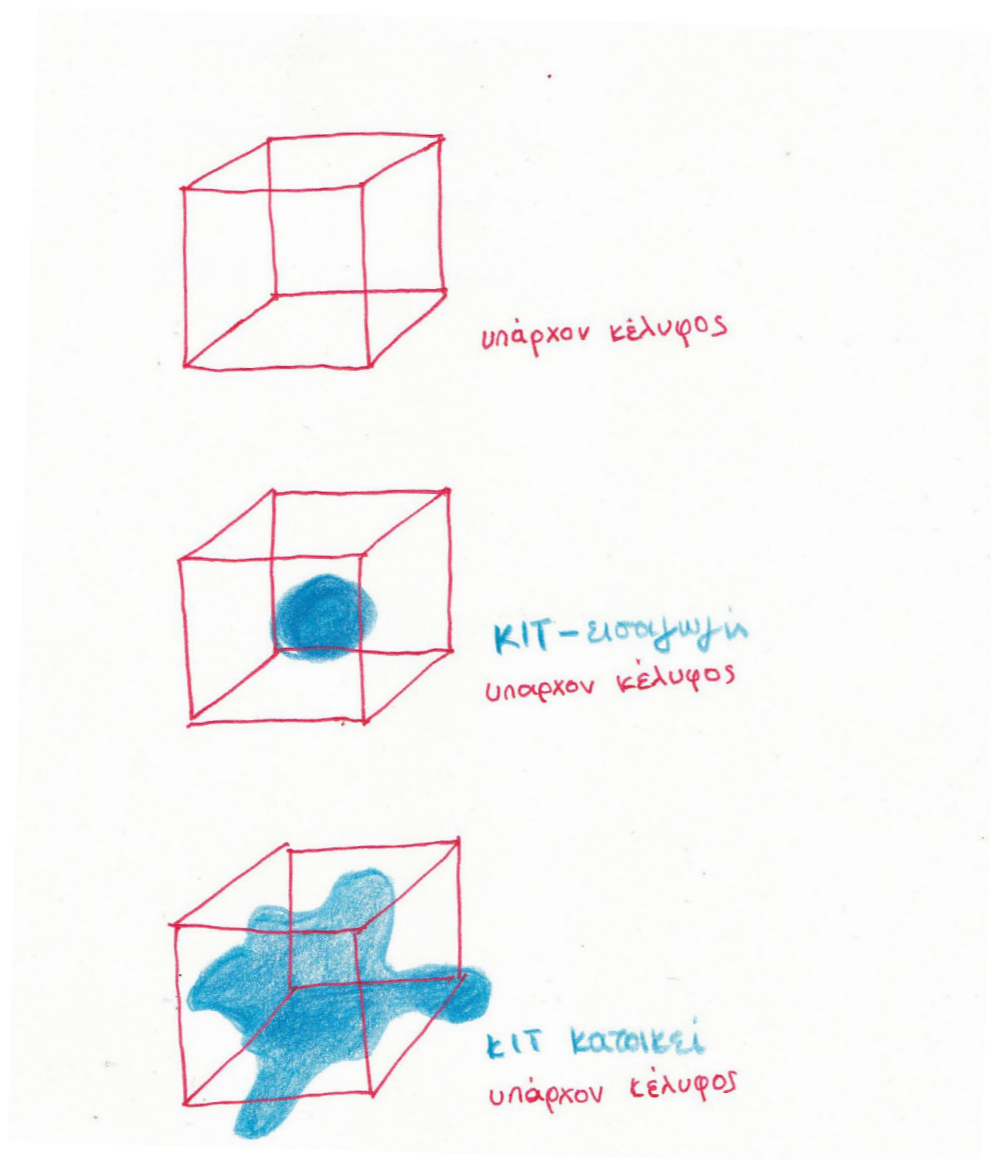 υπάρχον κέλυφος
ΚΙΤ-εισαγωγή
υπαρχον κέλυφος
ΚΙΤ κατοικεί
υπάρχον κέλυφος